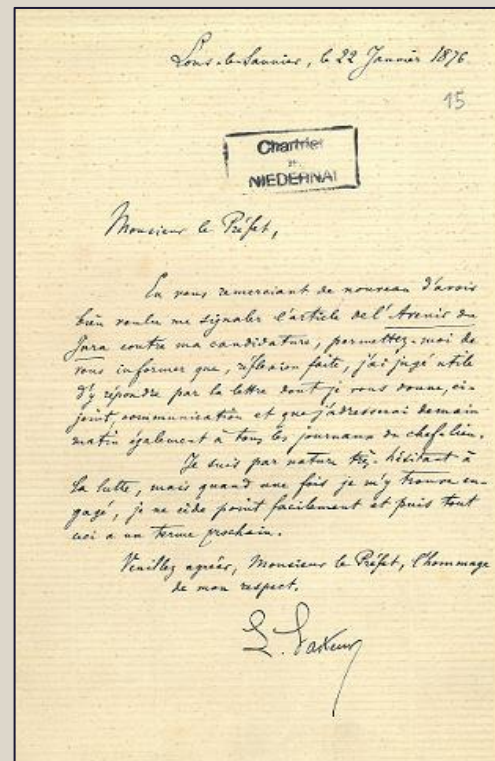 Lons-le-Saunier, le 22 Janvier 1876
15
Chartrier
NIEDERNAI
Monsieur le Préfet,
En vous remerciant de nouveau d'avoir
bien voulu me signaler l'article de l'Avenir du
Jura contre ma candidature, permettez-moi de
vous informer que, réflexion faite, j'ai jugé utile
d'y répondre par la lettre dont je vous donne, ci-
joint, communication et que j'adresserai demain
matin également à tous les journaux du chef-lieu.
Je suis par nature très-hésitant à
la lutte, mais quand une fois je m'y trouve en-
gagé, je ne cède point facilement et puis tout
ceci a un terme prochain.
Veuillez agréer, Monsieur le Préfet, l'hommage
de mon respect.
L. Pasteur